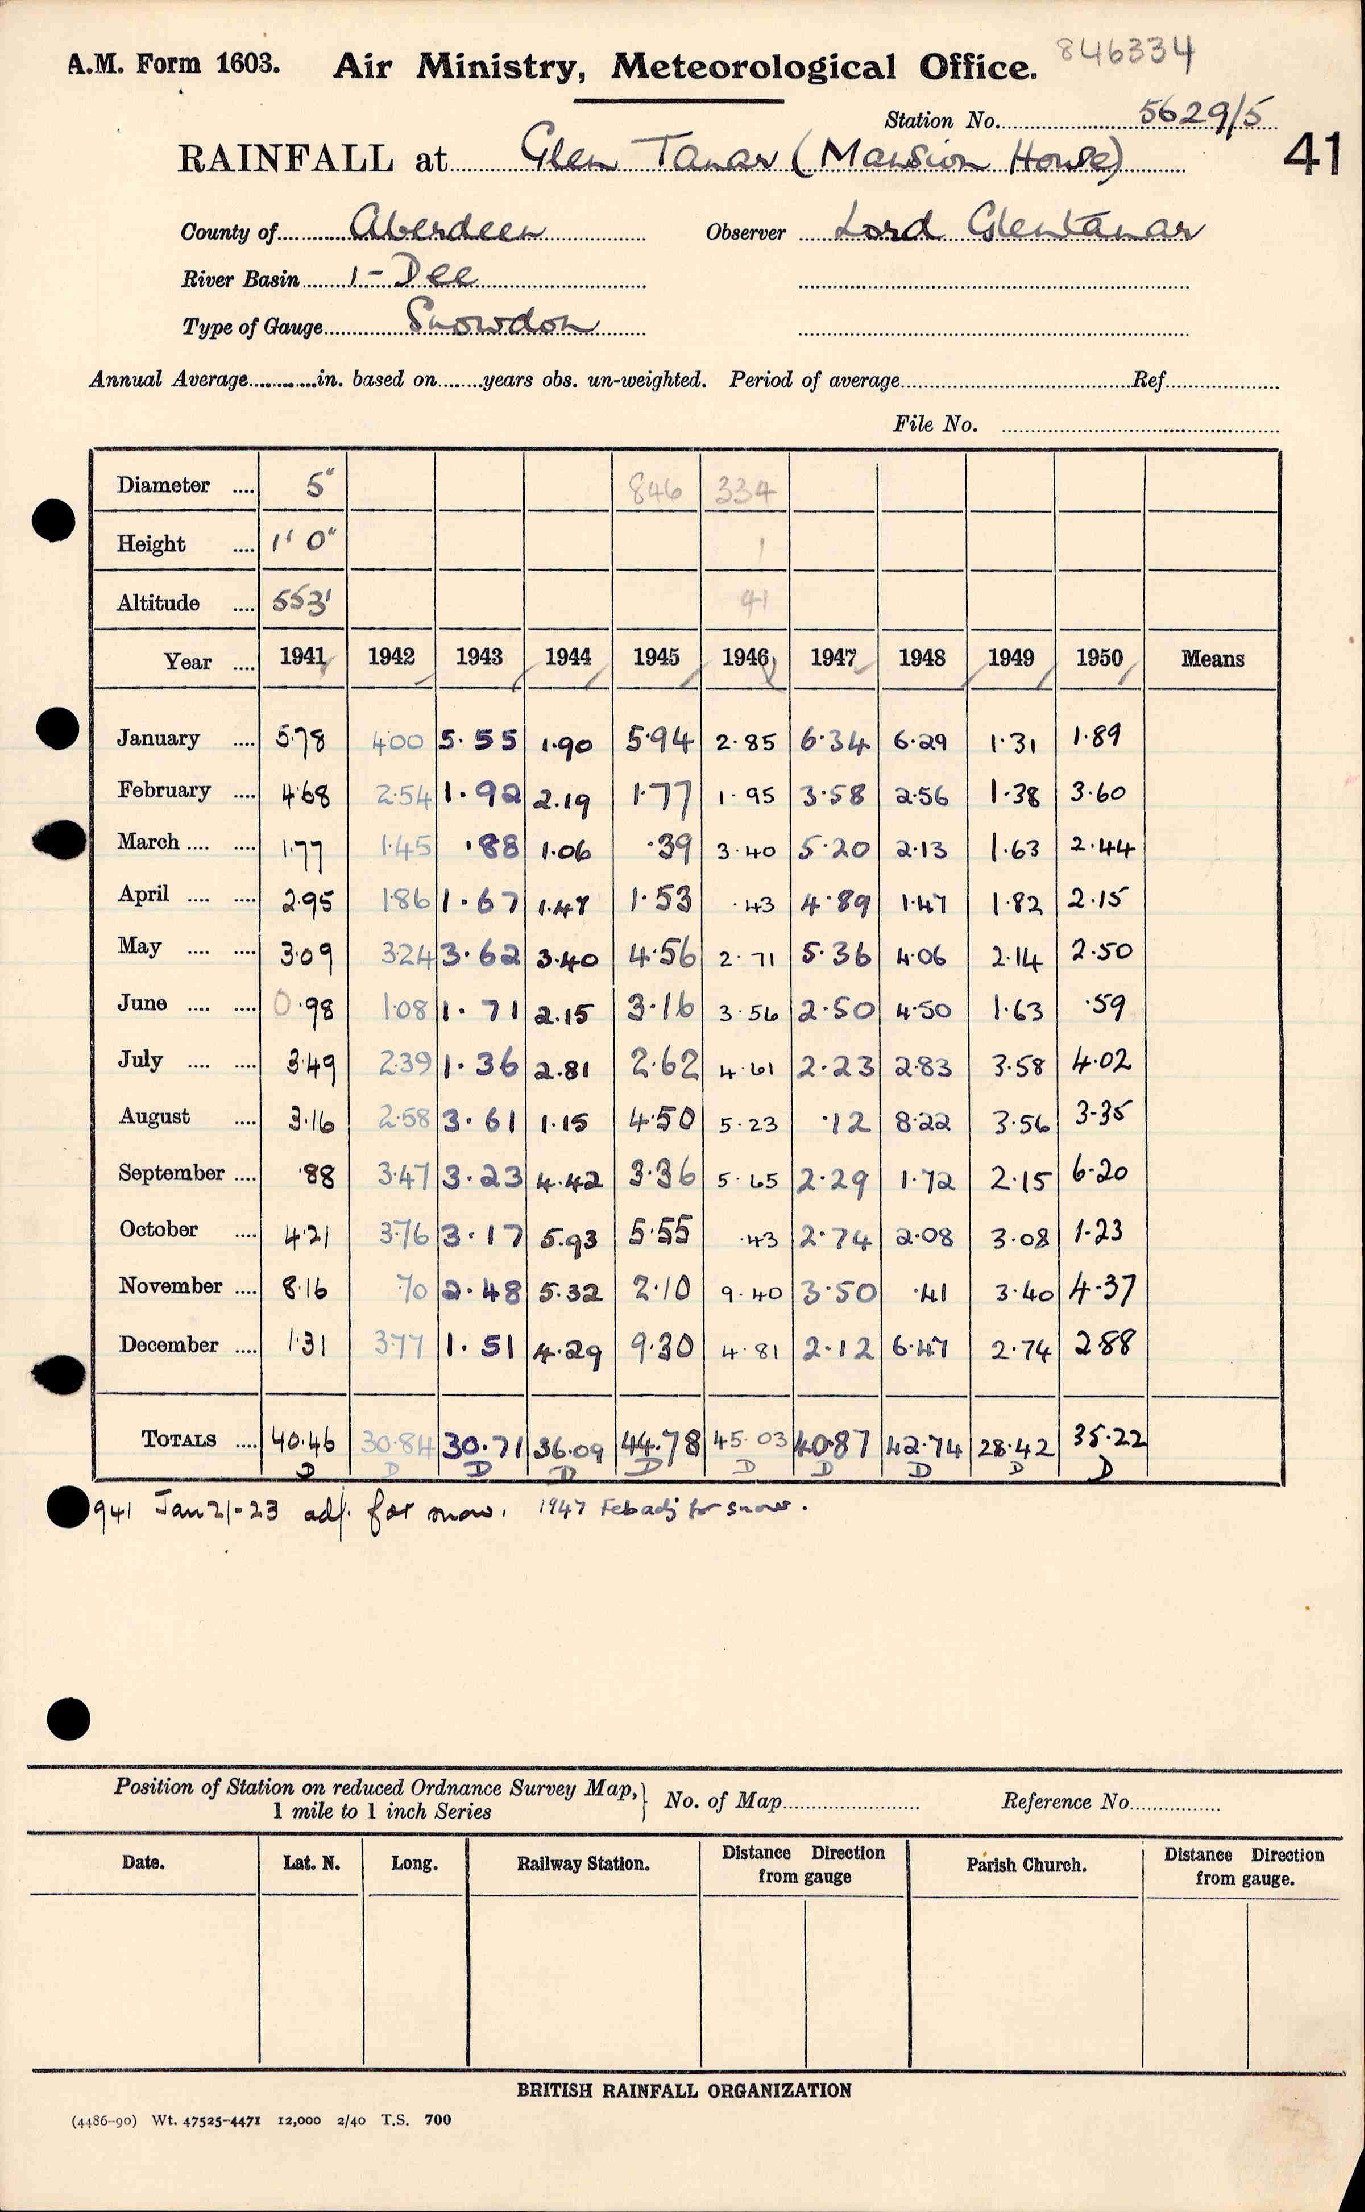 A.M. Form 1603. Air Ministry, Meteorological Office. 846334
Station No. 5629/5
RAINFALL at Glen Tanar (Mansion House) 41
County of Aberdeen Observer Lord Glentanar
River Basin 1-Dee
Type of Gauge Snowdon
Annual Average in. based on years obs. un-weighted. Period of average Ref
File No.
Diameter 5" 846 334
Height 1' 0" 1
Altitude 553' 41
Year 1941 1942 1943 1944 1945 1946 1947 1948 1949 1950 Means
January 5.78 4.00 5.55 1.90 5.94 2.85 6.34 6.29 1.31 1.89
February 4.68 2.54 1.92 2.19 1.77 1.95 3.58 2.56 1.38 3.60
March 1.77 1.45 .88 1.06 .39 3.40 5.20 2.13 1.63 2.44
April 2.95 1.86 1.67 1.47 1.53 .43 4.89 1.47 1.82 2.15
May 3.09 3.24 3.62 3.40 4.56 2.71 5.36 4.06 2.14 2.50
June 0.98 1.08 1.71 2.15 3.16 3.56 2.50 4.50 1.63 .59
July 3.49 2.39 1.36 2.81 2.62 4.61 2.23 2.83 3.58 4.02
August 3.16 2.58 3.61 1.15 4.50 5.23 .12 8.22 3.56 3.35
September .88 3.47 3.23 4.42 3.36 5.65 2.29 1.72 2.15 6.20
October 4.21 3.76 3.17 5.93 5.55 .43 2.74 2.08 3.08 1.23
November 8.16 .70 2.48 5.32 2.10 9.40 3.50 .41 3.40 4.37
December 1.31 3.77 1.51 4.29 9.30 4.81 2.12 6.47 2.74 2.88
TOTALS 40.46 30.84 30.71 36.09 44.78 45.03 40.87 42.74 28.42 35.22
D D D D D D D D D D
941 Jan 21-23 adj. for snow. 1947 Feb adj for snow.
Position of Station on reduced Ordnance Survey Map, No. of Map Reference No.
1 mile to 1 inch Series
Date. Lat. N. Long. Railway Station. Distance Direction from gauge Parish Church. Distance Direction from gauge.
BRITISH RAINFALL ORGANIZATION
(4486-90) Wt. 47525-4471 12,000 2/40 T.S. 700